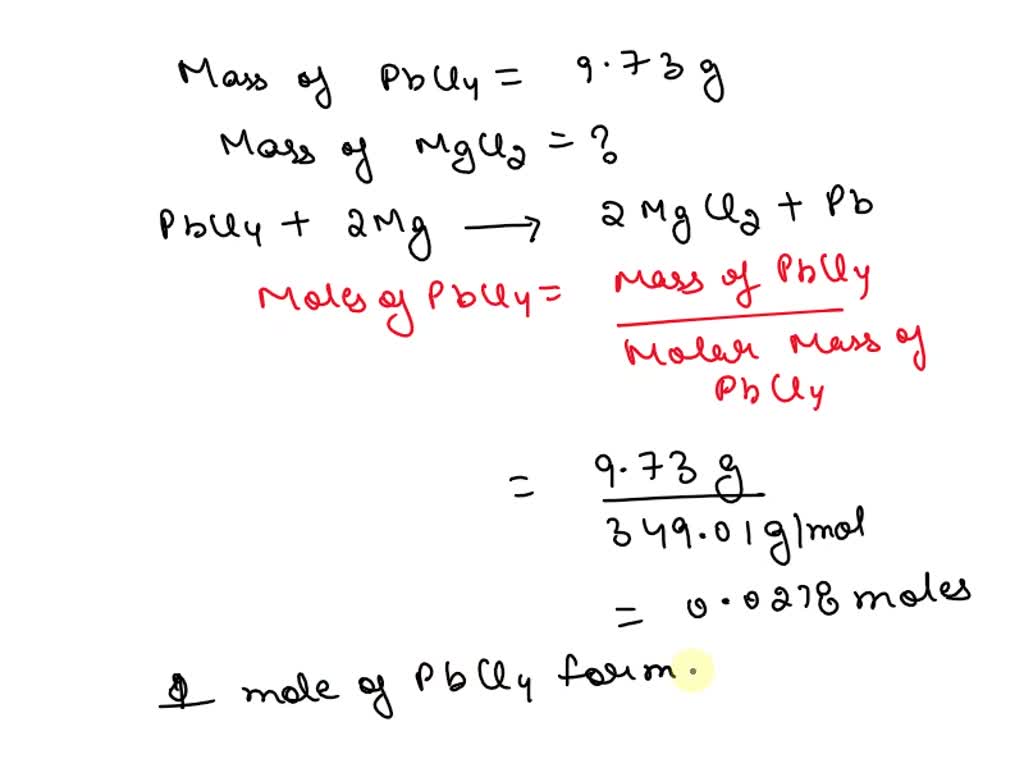 Mass of PbCl4 = 9.73 g
Mass of MgCl2 = ?
PbCl4 + 2Mg ⟶ 2MgCl2 + Pb
Moles of PbCl4 = Mass of PbCl4
Molar Mass of
PbCl4
= 9.73 g
349.01 g/mol
= 0.0278 moles
1 mole of PbCl4 form